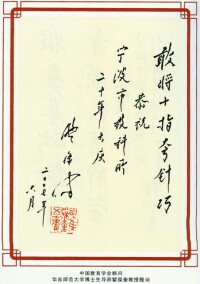 敢将十指夸针巧
恭祝
宁波市教科所
二十年大庆
瞿葆奎
二〇〇七年
六月
中国教育学会顾问
华东师范大学博士生导师瞿葆奎教授题词